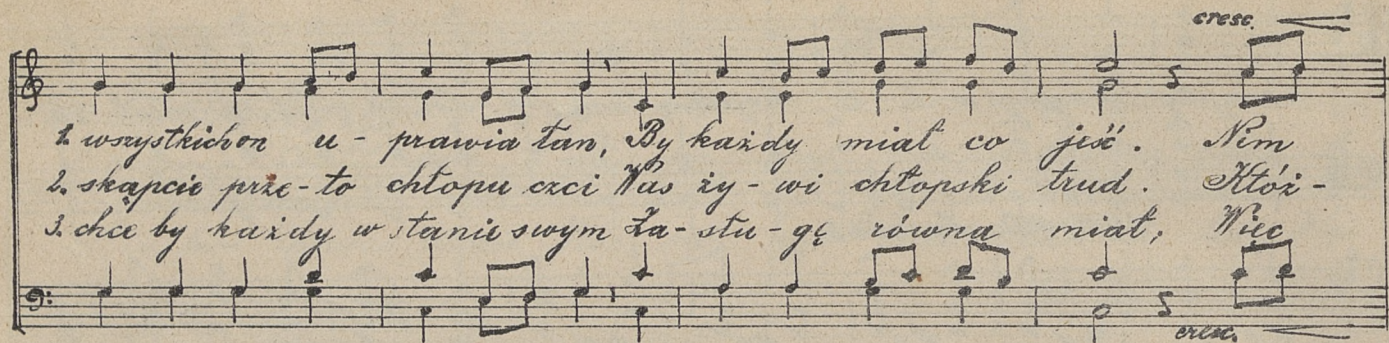 cresc.
1. wszystkich on u - prawia łan, By każdy miał co jiść. Nim
2. skąpcie prze - to chłopu czci Was ży - wi chłopski trud. Któż -
3. chce by każdy w stanie swym Za - słu - gę równą miał, Więc
cresc.